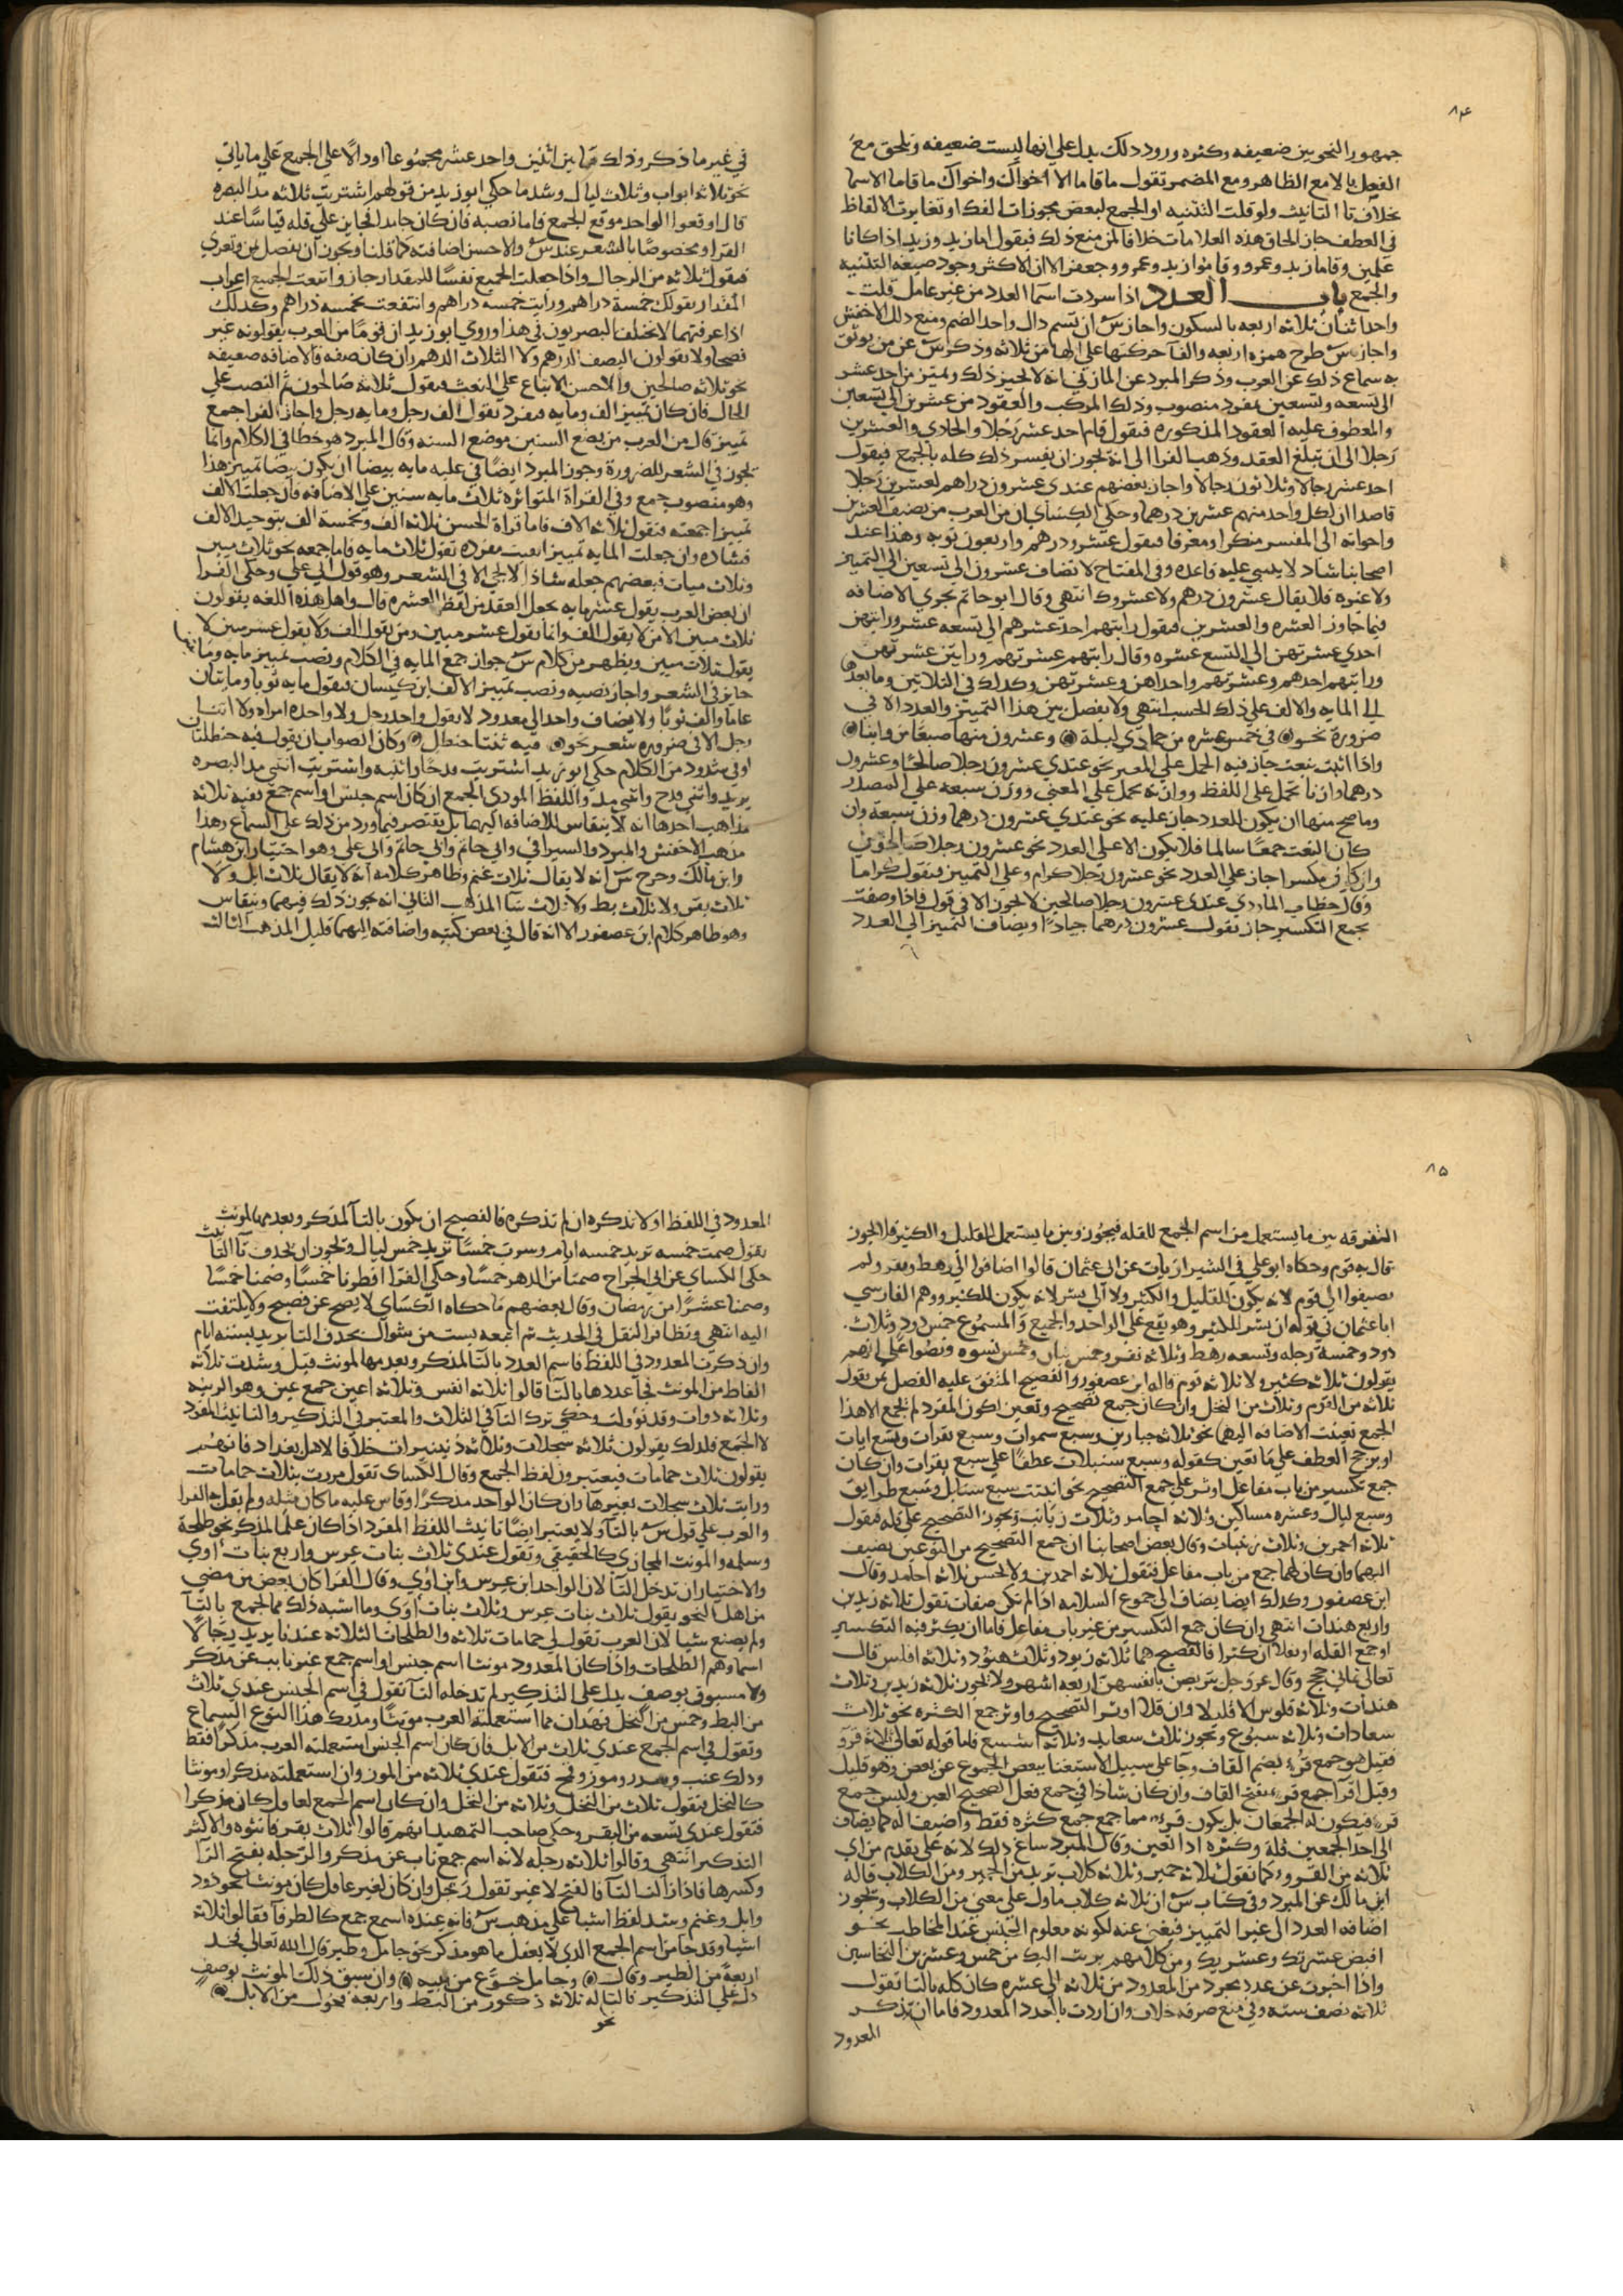 ٨٤
جمهور النحويين ضعيفه وكثره ورود ذلك يدل على انها ليست ضعيفه وتلحق مع
الفعل بالا مع الظاهر ومع المضمر تقول ما قاما الا اخواك واخواك ما قاما الا سما
بخلاف تا التانيث ولو قلت التثنيه او الجمع لبعض مجوزات الفك او تغايرت الالفاظ
في العطف جاز الحاق هذه العلامات خلافا لمن منع ذلك فيقول قاما زيد وزيد اذا كانا
علمين وقاما زيد وعمرو وقاموا زيد وعمرو وجعفر الا ان الاكثر وجود صيغه التثنيه
والجمع باب العدد اذا سردت اسما العدد من غير عامل قلت
واحد اثنان ثلاثه اربعه بالسكون واجاز س ان تشم دال واحد الضم ومنع ذلك الاخفش
واجاز س طرح همزه اربعه والقا حركتها على الها من ثلاثه وذكر س عن من يوثق
به سماع ذلك عن العرب وذكر المبرد عن المازني انه لا يجيز ذلك ويميز من احد عشر
الى تسعه وتسعين بمفرد منصوب وذلك المركب والعقود من عشرين الى تسعين
والمعطوف عليه العقود المذكوره فيقول قام احد عشر رجلا والحادي والعشرين
رجلا الى ان تبلغ العقد وذهب الفرا الى انه يجوز ان يفسر ذلك كله بالجمع فيقول
احد عشر رجالا وثلاثون رجالا واجاز بعضهم عندي عشرون دراهم لعشرين رجلا
قاصدا ان لكل واحد منهم عشرين درهما وحكى الكساي ان من العرب من يضيف العشرين
واخواته الى المفسر منكرا ومعرفا فيقول عشرو درهم واربعون ثوبه وهذا عند
اصحابنا شاذ لا يبنى عليه قاعده وفي المفتاح لا تضاف عشرون الى تسعين الى التمييز
ولا غيره فلا يقال عشرون درهم ولا عشروك انتهى وقال ابو حاتم يجري الاضافه
فيما جاوز العشره والعشرين فيقول رايتهم احد عشرهم الى تسعه عشر ورايتهن
احدى عشرتهن الى التسع عشره وقال رايتهم عشرتهم ورايتن عشرتهن
ورايتهم احدهم وعشرتهم واحداهن وعشرتهن وكذلك في الثلاثين وما بعدها
الى المايه والالف على ذلك الحسب انتهى ولا يفصل بين هذا التمييز والعدد الا في
ضرورة نحو في خمس عشره من جمادى ليلة وعشرون منها صبعا من وراينا
واذا اتيت بنعت جاز فيه الحمل على المميز نحو عندي عشرون رجلا صالحا وعشرون
درهما وازنا تحمل على اللفظ ووازنه تحمل على المعنى ووزن سبعه على المصدر
وما صح منها ان يكون للعدد جاز عليه نحو عندي عشرون درهما وزن سبعة وان
كان النعت جمعا سالما فلا يكون الا على العدد نحو عشرون رجلا صالحون
وان كان مكسرا جاز على العدد نحو عشرون رجلا كرام وعلى التمييز فيقول كراما
وقال خطاب الماردي عندي عشرون رجلا صالحين لا يجوز الا في قول فاذا وصفت
بجمع التكسير جاز تقول عشرون درهما جيادا ويضاف التمييز الى العدد
في غير ما ذكر وذلك ما بين اثنين واحد عشر مجموعا اودالا على الجمع على ما ياتي
نحو ثلاثه ابواب وثلاث ليال وشذ ما حكى ابو زيد من قولهم اشتريت ثلاثه مد البصره
قال اوقعوا الواحد موقع الجمع فاما نصبه فان كان جامدا فجايز على قله قياسا عند
الفرا ومخصوصا بالشعر عند س والاحسن اضافته كما قلنا ويجوز ان يفصل بمن وتعرى
فيقول ثلاثه من الرجال واذا جعلت الجميع نفسا للمقدار جاز واتبعت الجميع اعراب
المقدار يقولك خمسة دراهم ورايت خمسه دراهم وانتفعت بخمسه دراهم وكذلك
اذا عرفتهما لا يختلف البصريون في هذا وروى ابو زيد ان قوما من العرب يقولونه غير
فصحا ولا يقولون النصف الدرهم ولا الثلاث الدهم وان كان صفه فالاضافه ضعيفه
نحو ثلاثه صالحين والاحسن الاتباع على النعت فيقول ثلاثه صالحون ثم النصب على
الحال فان كان تمييز الف ومايه فمفرد تقول الف رجل ومايه رجل واجاز الفرا جمع
تمييز قال من العرب من يضع السنين موضع السنه وقال المبرد هو خطا في الكلام وانما
يجوز في الشعر للضرورة وجوز المبرد ايضا في عليه مايه بيضا ان يكون بيضا تمييز هذا
وهو منصوب جمع وفي القراة المتواتره ثلاث مايه سنين على الاضافه وان جعلت الالف
تمييزا جمعته فتقول ثلاثه الاف فاما قراة الحسن بثلاثه الف وبخمسة الف بتوحيد الالف
فشاذه وان جعلت المايه تمييزا بقيت مفرده تقول ثلاث مايه فاما جمعه نحو ثلاث ميين
وثلاث ميات فبعضهم جعله شاذا لا يجي الا في الشعر وهو قول ابي علي وحكى الفرا
ان بعض العرب يقول عشر مايه يجعل العقد من لفظ العشره قال واهل هذه اللغه يقولون
ثلاث ميين الامن لا يقول الف وانما يقول عشر ميين ومن يقول الف ولا يقول عشر ميين لا
يقول ثلاث ميين ويظهر من كلام س جواز جمع المايه في الكلام ونصب تمييز مايه وماتين
جايز في الشعر واجاز نصبه ونصب تمييز الالف ابن كيسان فيقول مايه ثوبا وماتان
عاما والف ثوبا ولا يضاف واحد الى معدود لا يقول واحد رجل ولا واحده امراه ولا اثنا
رجل الا في ضروره شعر نحو فيه ثنتا حنظل وكان الصواب ان يقول فيه حنظلتان
اوفي شذوذ من الكلام حكى ابو زيد اشتريت قدحا واثنيه واشتريت اثنى مد البصره
يريد واثنى قدح واثنى مد واللفظ المودي الجمع ان كان اسم جنس او اسم جمع ففيه ثلاثه
مذاهب احدها انه لا ينقاس للاضافه اليهما بل يقتصر فيما ورد من ذلك على السماع وهذا
مذهب الاخفش والمبرد والسيرافي وابي حاتم وابي علي وهو اختيار ابن هشام
وابن مالك وصرح س انه لا يقال ثلاث غنم وظاهر كلامه انه لا يقال ثلاث ابل ولا
ثلاث بقر ولا ثلاث بط ولا ثلاث شا المذهب الثاني انه يجوز ذلك فيهما وينقاس
وهو ظاهر كلام ابن عصفور الا انه قال في بعض كتبه واضافته اليهما قليل المذهب الثالث
٨٥
التفرقه بين ما يستعمل من اسم الجمع للقله فيجوز وبين ما يستعمل للقليل والكثير فلا يجوز
قال به قوم وحكاه ابو علي في الشيرازيات عن ابي عثمان قالوا اضافوا الى رهط ونفر ولم
يضيفوا الى قوم لانه يكون للقليل والكثير ولا الى بشر لانه يكون للكثير ووهم الفارسي
ابا عثمان في قوله ان بشر للكثير وهو يقع على الواحد والجميع والمسموع خمس ذود وثلاث
ذود وخمسة رجله وتسعه رهط وثلاثه نفر وخمس بنان وخمس نسوه ونصوا على انهم
يقولون ثلاثه كثير ولا ثلاثه قوم قاله ابن عصفور والفصيح المتفق عليه الفصل بمن تقول
ثلاثه من القوم وثلاث من النخل وان كان جمع تصحيح وتعين اكون المفرد لم يجمع الا هذا
الجمع تعينت الاضافه اليهما نحو ثلاثه جبارين وسبع سموات وسبع بقرات وتسع ايات
او يرجح العطف على ما تعين كقوله وسبع سنبلات عطفا على سبع بقرات وان كان
جمع تكسير من باب مفاعل اوثر على جمع التصحيح نحو انبتت سبع سنابل وسبع طرايق
وسبع ليال وعشره مساكين وثلاثه احامد وثلاث زيانب ويجوز التصحيح على قله فيقول
ثلاثه احمدين وثلاث زينبات وقال بعض اصحابنا ان جمع التصحيح من النوعين يضيف
اليهما وان كان لهما جمع من باب مفاعل فتقول ثلاثه احمدين ولا يحسن ثلاثه احامد وقال
ابن عصفور وكذلك ايضا يضاف الى جموع السلامه اذا لم تكن صفات تقول ثلاثه زيدين
واربع هندات انتهى وان كان جمع التكسير من غير باب مفاعل فاما ان يكثر فيه التكسير
اوجمع القله او يقلا ان كثرا فالفصيح هما ثلاثه زيود وثلاث هنود وثلاثه افلس قال
تعالى ثماني حجج وقال عز وجل يتربصن بانفسهن اربعه اشهر ولا يجوز ثلاثه زيدين وثلاث
هندات وثلاثه فلوس الا قليلا وان قلا اوثر التصحيح واوثر جمع الكثره نحو ثلاث
سعادات وثلاثه شسوع ويجوز ثلاث سعايد وثلاثه اشسع فاما قوله تعالى ثلاثة قروء
فقيل هو جمع قرء بضم القاف وجا على سبيل الاستغنا ببعض الجموع عن بعض وهو قليل
وقيل اقرا جمع قرء بفتح القاف وان كان شاذا في جمع فعل الصحيح العين وليس جمع
قرء فيكون له الجمعان بل يكون قرء مما جمع جمع كثره فقط واضيف له كما يضاف
الى احد الجمعين قله وكثره اذا تعين وقال المبرد ساغ ذلك لانه على تقدير من اي
ثلاثه من القروء كما تقول ثلاثه حمير وثلاثه كلاب تريد من الحمير ومن الكلاب قاله
ابن مالك عن المبرد وفي كتاب س ان ثلاثه كلاب ماول على معنى من الكلاب ويجوز
اضافه العدد الى غير التمييز فيغنى عنه لكونه معلوم الجنس عند المخاطب نحو
اقبض عشرتك وعشريك ومن كلامهم بريت اليك من خمس وعشرين النخاسين
واذا اخبرت عن عدد مجرد من المعدود من ثلاثه الى عشره كان كله بالتا تقول
ثلاثه نصف سته وفي منع صرفه خلاف وان اردت باحدد المعدود فاما ان تذكر
المعدود
المعدود في اللفظ او لا تذكره ان لم تذكره فالفصيح ان يكون بالتا لمذكر وبعدمها لمونث
يقول صمت خمسه تريد خمسه ايام وسرت خمسا تريد خمس ليال ويجوز ان يحذف تا التانيث
حكى الكساي عن ابي الجراح صمنا من الدهر خمسا وحكى الفرا افطرنا خمسا وصمنا خمسا
وصمنا عشرا من رمضان وقال بعضهم ما حكاه الكساي لا يصح عن فصيح ولا يلتفت
اليه انتهى وتظافر النقل في الحديث ثم اتبعه بست من شوال بحذف التا يريد بسته ايام
وان ذكرت المعدود في اللفظ فاسم العدد بالتا لمذكر وبعدمها لمونث قيل وشذت ثلاثه
الفاظ من المونث جا عددها بالتا قالوا ثلاثه انفس وثلاثه اعين جمع عين وهو الربيه
وثلاثه دوات وقد تؤولت وحكي ترك التا في الثلاث والمعتبر في التذكير والتانيث المفرد
لا الجمع فلذلك يقولون ثلاثه سجلات وثلاثه دنينيرات خلافا لاهل بغداد فانهم
يقولون ثلاث حمامات فيعتبرون لفظ الجمع وقال الكساي تقول مررت بثلاث حمامات
ورايت ثلاث سجلات بغير ها وان كان الواحد مذكرا وقاس عليه ما كان مثله ولم يقل به الفرا
والعرب على قول س بالتا ولا يعتبر ايضا تانيث اللفظ المفرد اذا كان علما لمذكر نحو طلحة
وسلمه والمونث المجازي كالحقيقي وتقول عندي ثلاث بنات عرس واربع بنات اوى
والاختيار ان تدخل التا لان الواحد ابن عرس وابن اوى وقال الفرا كان بعض من مضى
من اهل النحو يقول ثلاث بنات عرس وثلاث بنات اوى وما اشبه ذلك مما يجمع بالتا
ولم يصنع شيا لان العرب تقول لي حمامات ثلاثه والطلحات الثلاثه عندنا يريد رجالا
اسماوهم الطلحات واذا كان المعدود مونثا اسم جنس او اسم جمع غير نايب عن مذكر
ولا مسبوق بوصف يدل على التذكير لم تدخله التا تقول في اسم الجنس عندي ثلاث
من البط وخمس من النخل فهذان مما استعملته العرب مونثا ومدرك هذا النوع السماع
وتقول في اسم الجمع عندي ثلاث من الابل فان كان اسم الجنس استعملته العرب مذكرا فقط
وذلك عنب وسدر وموز وقمح فتقول عندي ثلاثه من الموز وان استعملته مذكرا ومونثا
كالنخل فيقول ثلاث من النخل وثلاثه من النخل وان كان اسم الجمع لعاقل كان مذكرا
فتقول عندي تسعه من البقر وحكى صاحب التمهيد انهم قالوا ثلاث بقر فانثوه والاكثر
التذكير انتهى وقالوا ثلاثه رجله لانه اسم جمع ناب عن مذكر والرجله بفتح الرا
وكسرها فاذا زالت التا فالفتح لا غير تقول رجل وان كان لغير عاقل كان مونثا نحو ذود
وابل وغنم وشذ لفظ اشيا على مذهب س فانه عنده اسم جمع كالطرفا فقالوا ثلاثه
اشيا وقد جا من اسم الجمع الذي لا يعقل ما هو مذكر نحو جامل وطير قال الله تعالى فخذ
اربعة من الطير وقال وجامل خوع من نيبه وان سبق ذلك المونث بوصف
دل على التذكير فالتا له ثلاثه ذكور من البط واربعه فحول من الابل
نحو